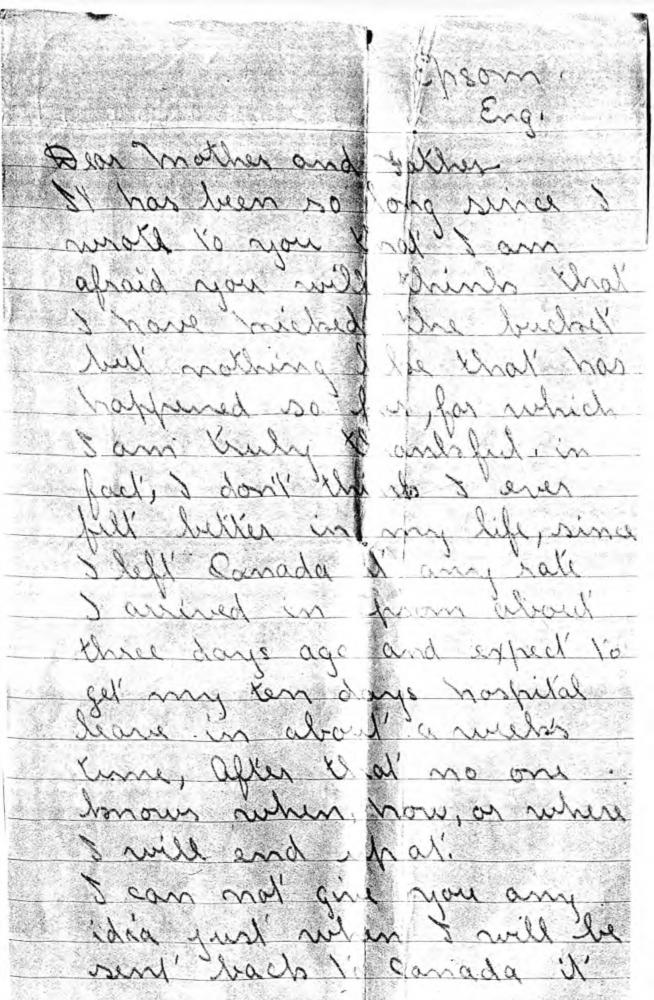 Epsom.
Eng.
Dear Mother and Father
It has been so long since I
wrote to you that I am
afraid you will think that
I have kicked the bucket
but nothing like that has
happened so far, for which
I am truly thankful. in
fact, I don't think I ever
felt better in my life, since
I left Canada at any rate
I arrived in Epsom about
three days ago and expect to
get my ten days hospital
leave in about a weeks
time, After that no one
knows when, how, or where
I will end up at.
I can not give you any
idea just when I will be
sent back to Canada it